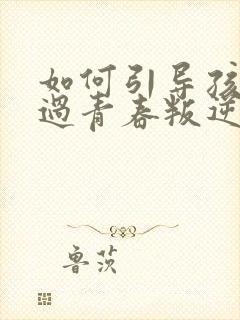 如何引导孩
過青春叛逆
鲁茨